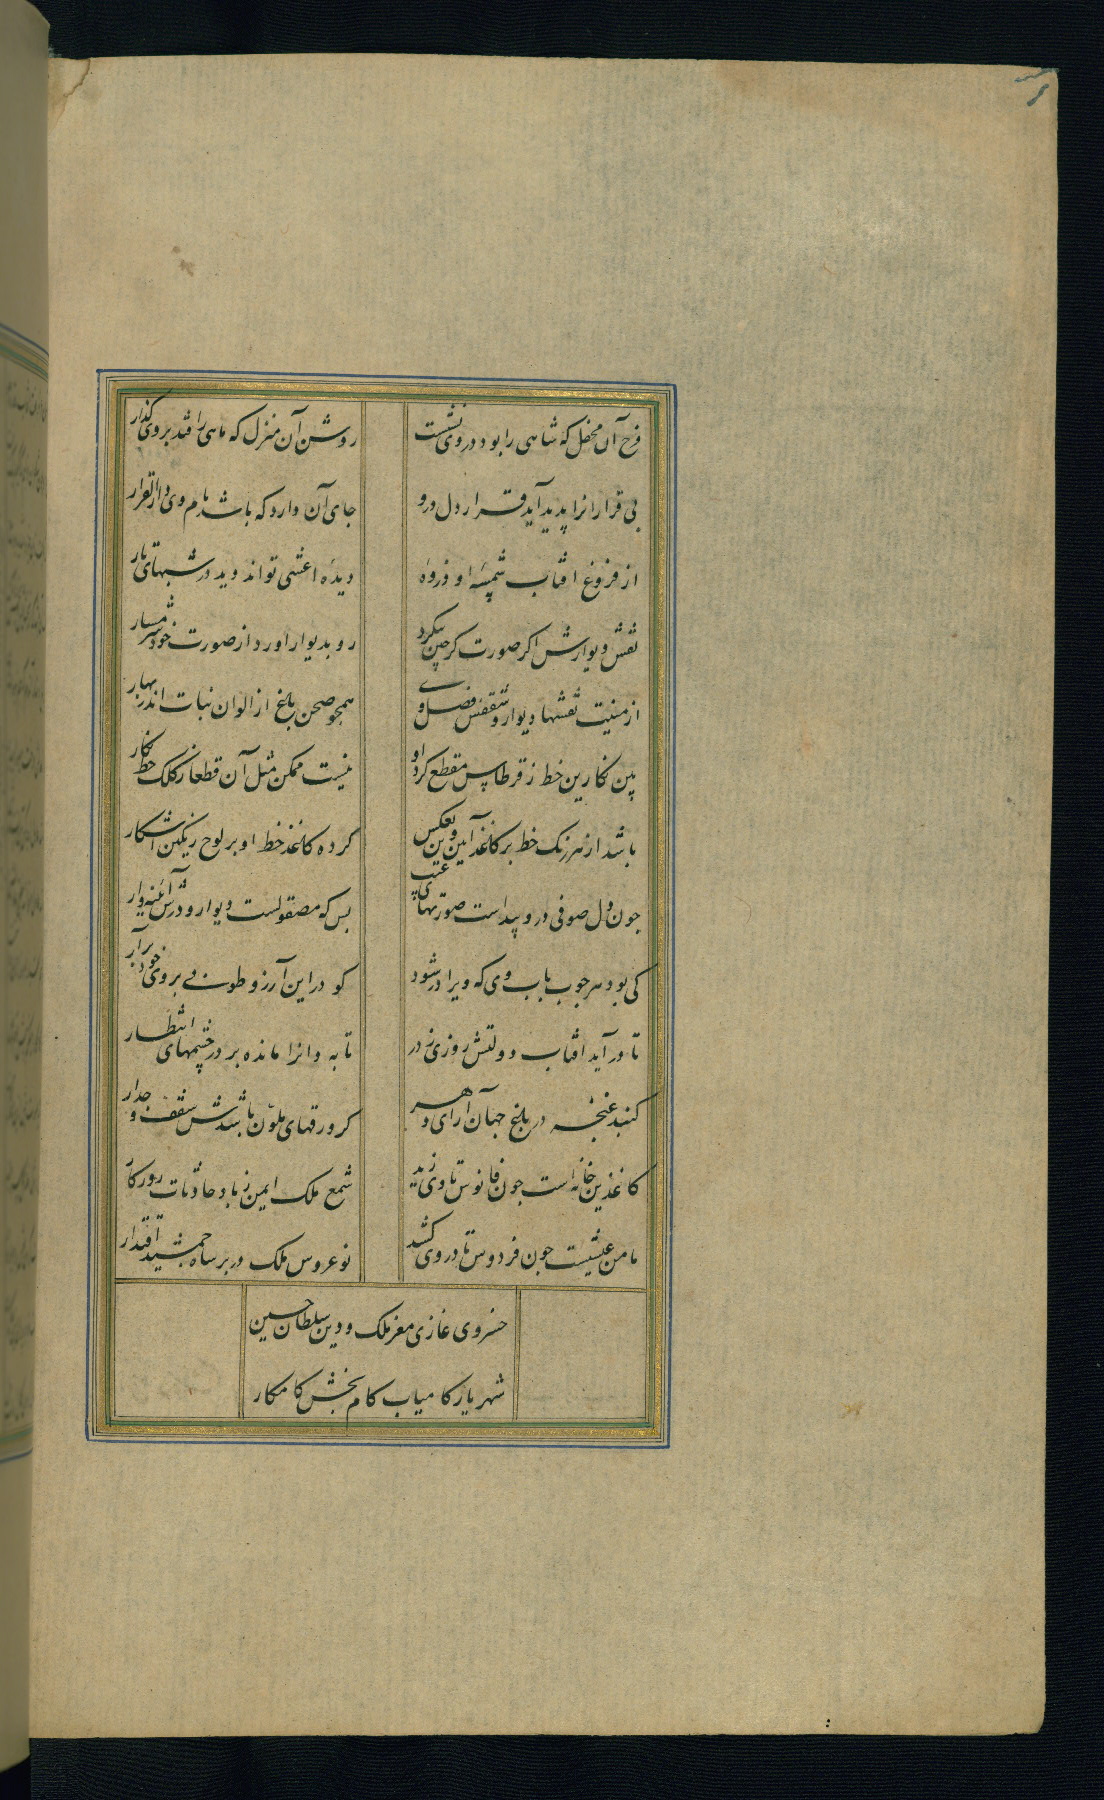 فرخ آن محفل که شاهی را بود در وی نشست روشن آن منزل که ماهی را فتد بر وی گذار
بی قرارانرا پدید آید قرار دل درو جای آن دارد که باشد نام وی دار القرار
از فروغ افتاب شمسهٔ او ذروه دیدهٔ اعشی تواند دید در شبهای تار
نقش دیوارش اکر صورتکر چین بنکرد رو بدیوار اورد از صورت خود شرمسار
نقشها دیوار و سقفش فصل دی همچو صحن باغ از الوان نبات اندر بهار
نکارین خط ز قرطاس مقطع کرد او نیست ممکن مثل آن قطعا ز کلک خط نکار
باشد از هر رنک خط بر کاغذ آیین وین بعکس کرده کاغذ خط او بر لوح رنکین اشکار
چون دل صوفی درو پیداست صورتهای غیب بس که مصقولست دیوار و درش آئینه وار
کی بود هر چوب باب وی که ویرا در شود کو در این آرزو طوبی بروی خود برآر
تا در آید افتاب دولتش روزی ز در تابه دانرا مانده بر در چشمهای انتظار
کنبد غنچه در باغ جهان آرای دهر کز ورقهای ملون باشدش سقف و جدار
کاغذین خانه است چون فانوس تا وی زید شمع ملک ایمن ز باد حادثات روزکار
مامن عیشیست چون فردوس تا در وی کشد نو عروس ملک در بر شاه جمشید اقتدار
خسروی غازی معز ملک و دین سلطان حسین
شهریار کامیاب کام بخش کامکار